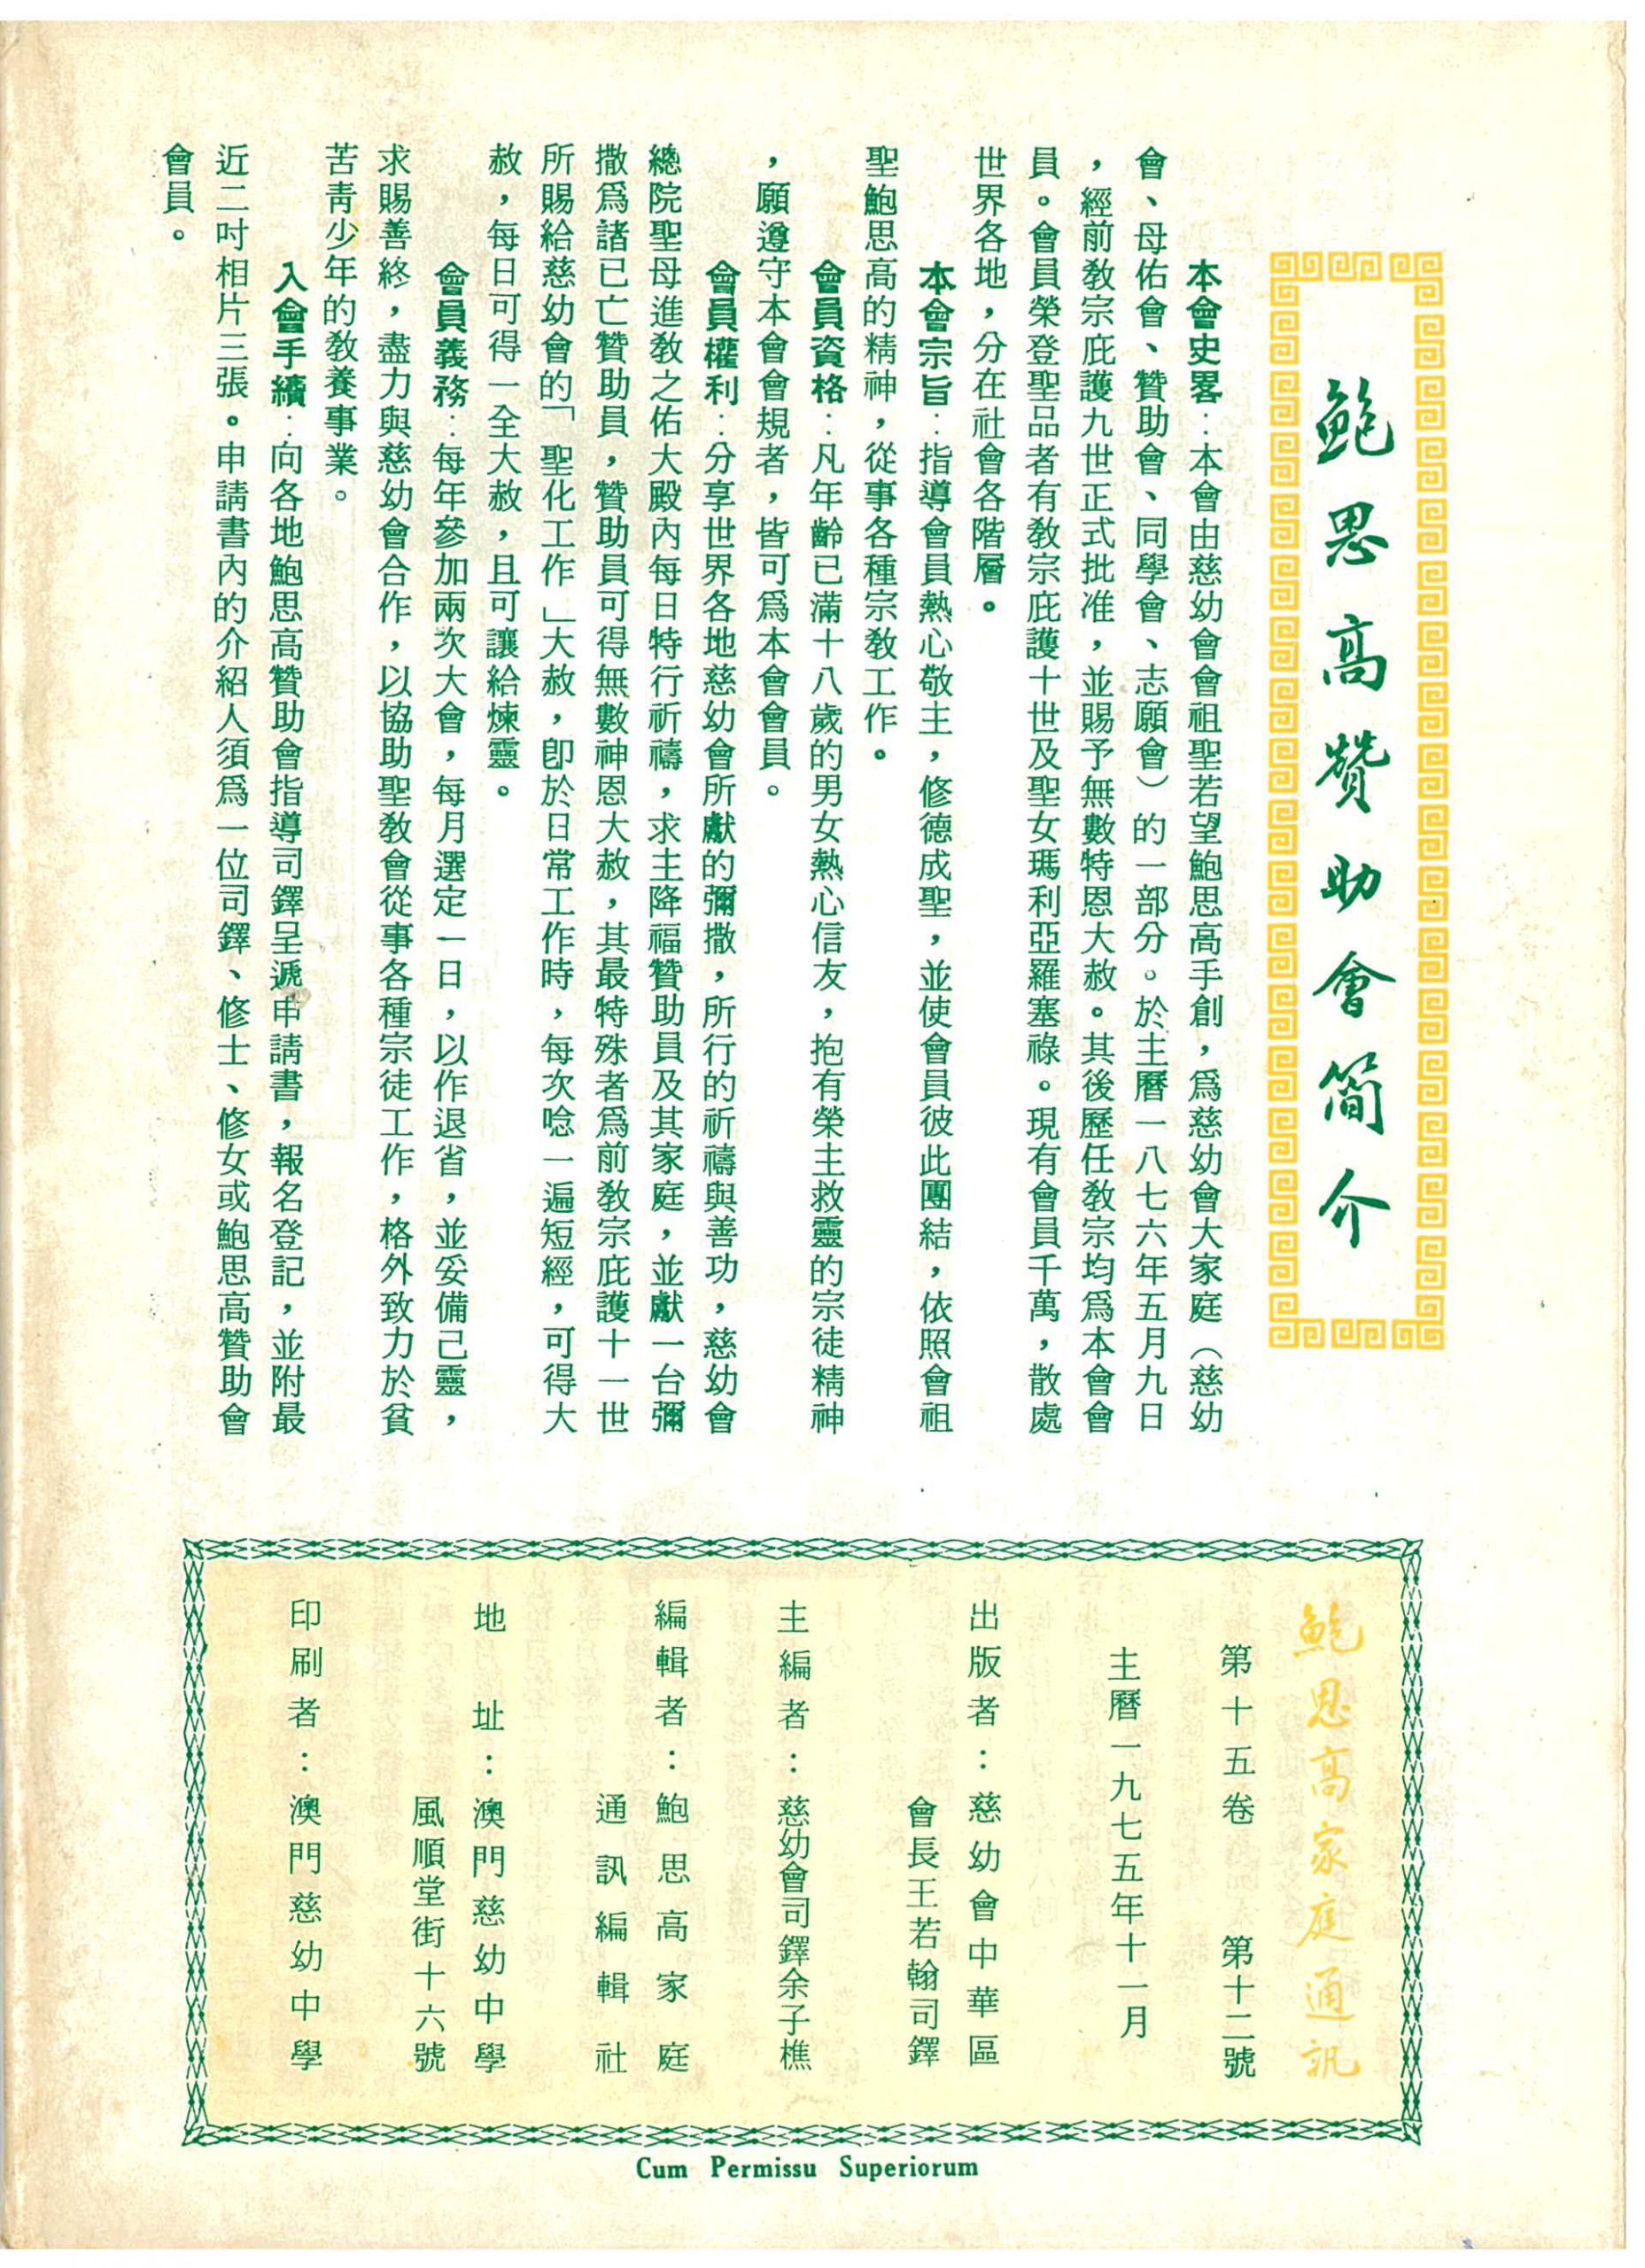 鮑思高贊助會簡介
本會史畧：本會由慈幼會會祖聖若望鮑思高手創，爲慈幼會大家庭（慈幼
會、母佑會、贊助會、同學會、志願會）的一部分。於主曆一八七六年五月九日
，經前敎宗庇護九世正式批准，並賜予無數特恩大赦。其後歷任敎宗均爲本會會
員。會員榮登聖品者有敎宗庇護十世及聖女瑪利亞羅塞祿。現有會員千萬，散處
世界各地，分在社會各階層。
本會宗旨：指導會員熱心敬主，修德成聖，並使會員彼此團結，依照會祖
聖鮑思高的精神，從事各種宗敎工作。
會員資格：凡年齡已滿十八歲的男女熱心信友，抱有榮主救靈的宗徒精神
，願遵守本會會規者，皆可爲本會會員。
會員權利：分享世界各地慈幼會所獻的彌撒，所行的祈禱與善功，慈幼會
總院聖母進敎之佑大殿內每日特行祈禱，求主降福贊助員及其家庭，並獻一台彌
撒爲諸已亡贊助員，贊助員可得無數神恩大赦，其最特殊者爲前敎宗庇護十一世
所賜給慈幼會的「聖化工作」大赦，卽於日常工作時，每次唸一遍短經，可得大
赦，每日可得一全大赦，且可讓給煉靈。
會員義務：每年參加兩次大會，每月選定一日，以作退省，並妥備己靈，
求賜善終，盡力與慈幼會合作，以協助聖敎會從事各種宗徒工作，格外致力於貧
苦靑少年的敎養事業。
入會手續：向各地鮑思高贊助會指導司鐸呈遞申請書，報名登記，並附最
近二吋相片三張。申請書內的介紹人須爲一位司鐸、修士、修女或鮑思高贊助會
會員。
鮑思高家庭通訊
第十五卷　第十二號
主曆一九七五年十一月
出版者：慈幼會中華區
會長王若翰司鐸
主編者：慈幼會司鐸余子樵
編輯者：鮑思高家庭
通訊編輯社
地　址：澳門慈幼中學
風順堂街十六號
印刷者：澳門慈幼中學
Cum Permissu Superiorum